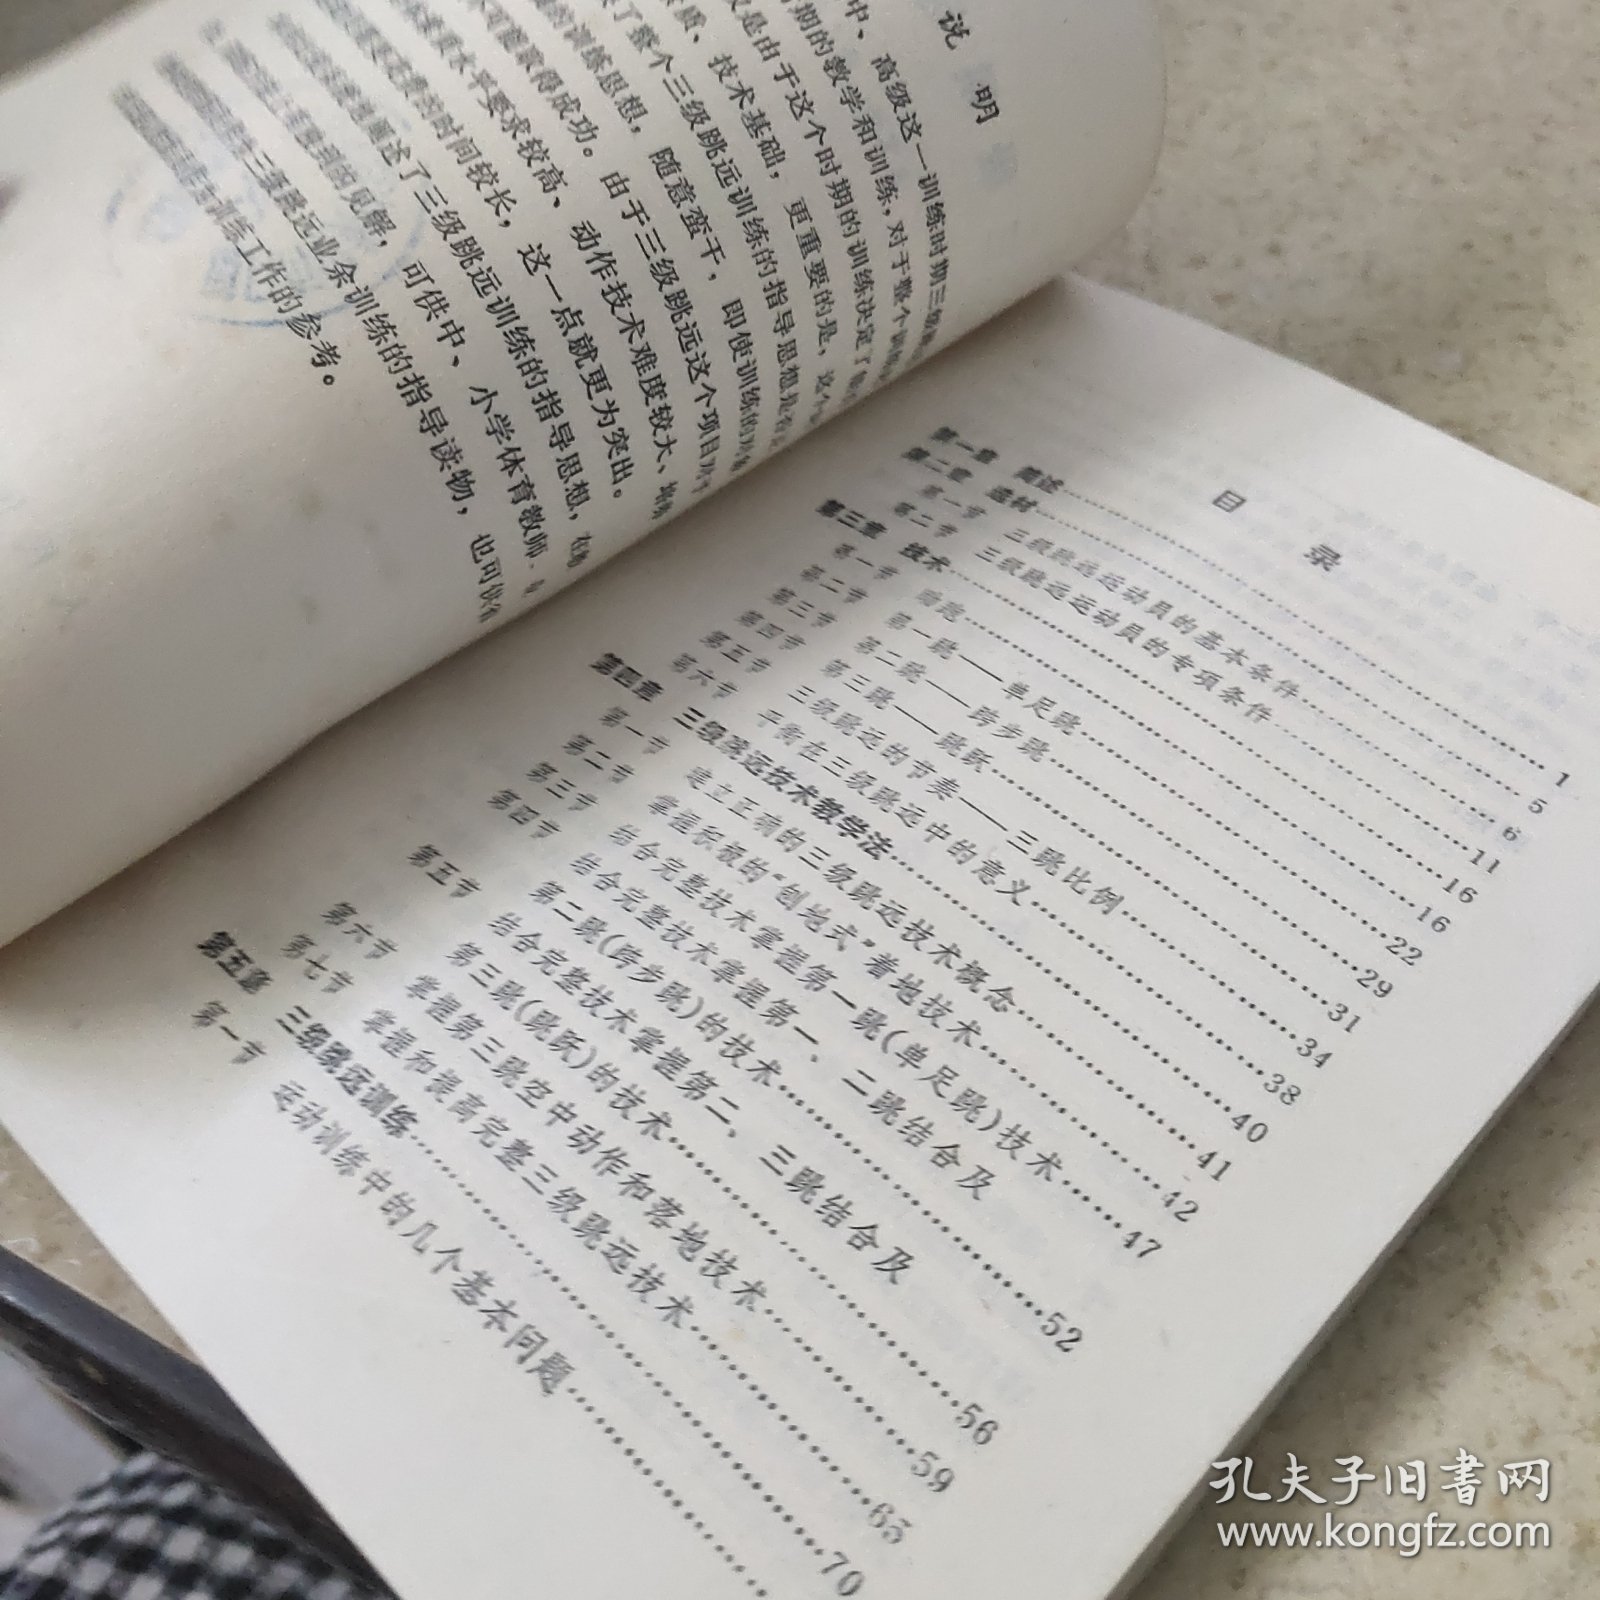 说 明
中、高级这一训练时期三级跳
期的教学和训练，对于整个训练
是由于这个时期的训练决定了
质、技术基础，更重要的是，这个
了整个三级跳远训练的指导思想是否
的训练思想，随意蛮干，即使训练的对象
不可能取得成功。由于三级跳远这个项目对于
水平要求较高、动作技术难度较大、培养
的时间较长，这一点就更为突出。
概述了三级跳远训练的指导思想，在
到的见解，可供中、小学体育教师、
三级跳远业余训练的指导读物，也可供
训练工作的参考。
目 录
第一章 简述……1
第二章 选材……5
第一节 三级跳远运动员的基本条件……6
第二节 三级跳远运动员的专项条件……11
第三章 技术……16
第一节 助跑……16
第二节 第一跳——单足跳……22
第三节 第二跳——跨步跳……29
第四节 第三跳——跳跃……31
第五节 三级跳远的节奏——三跳比例……34
第六节 平衡在三级跳远中的意义……38
第四章 三级跳远技术教学法……40
第一节 建立正确的三级跳远技术概念……41
第二节 掌握积极的“刨地式”着地技术……42
第三节 结合完整技术掌握第一跳(单足跳)技术……47
第四节 结合完整技术掌握第一、二跳结合及
第二跳(跨步跳)的技术……52
第五节 结合完整技术掌握第二、三跳结合及
第三跳(跳跃)的技术……56
第六节 掌握第三跳空中动作和落地技术……59
第七节 掌握和提高完整三级跳远技术……65
第五章 三级跳远训练……70
第一节 运动训练中的几个基本问题……
孔夫子旧书网
www.kongfz.com